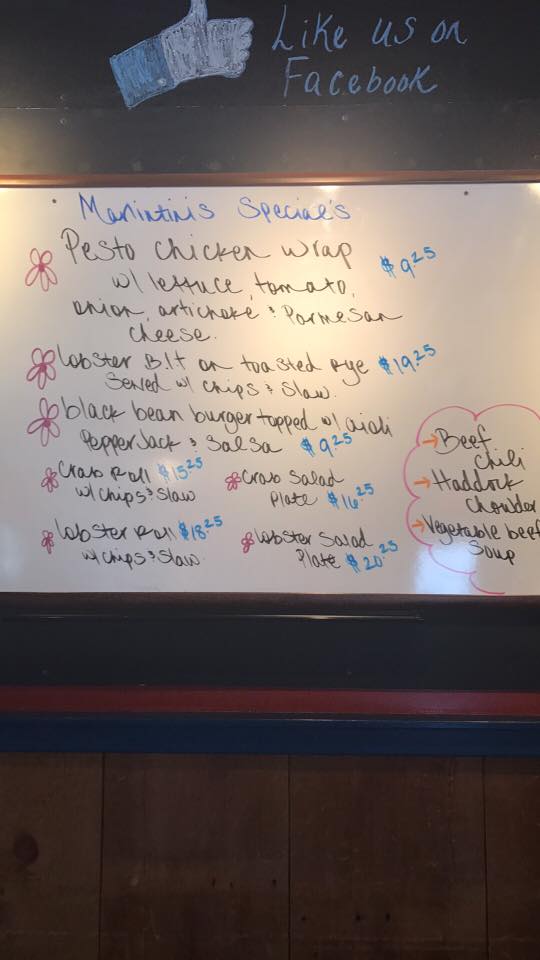 Like us on
Facebook
Special's
Pesto chicken wrap $9.25
w/ lettuce, tomato,
onion, artichoke & Parmesan
cheese.
lobster B.l.t on toasted rye $19.25
Served w/ chips & Slaw.
black bean burger topped w/ aioli
Pepper Jack & Salsa $9.25
Crab Roll $15.25
w/ chips & Slaw
Crab Salad
Plate $16.25
lobster Roll $18.25
w/ chips & Slaw.
lobster Salad
Plate $20.25
→Beef
Chili
→Haddock
Chowder
→Vegetable beef
Soup